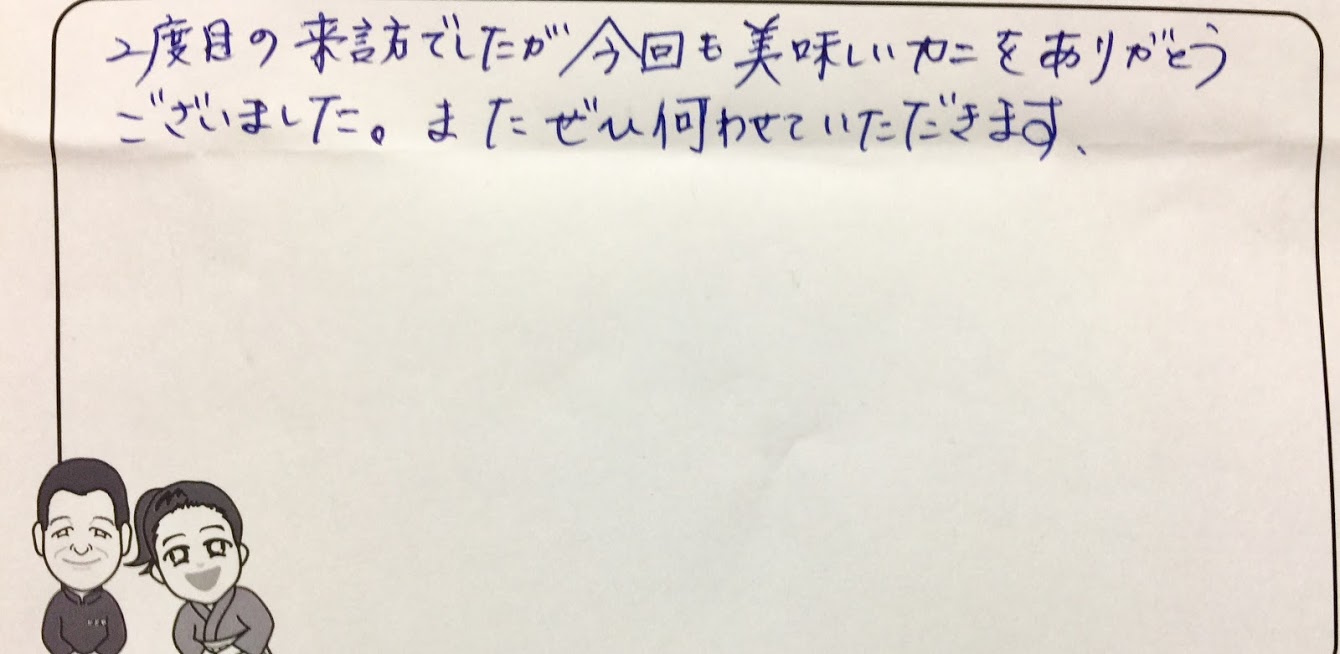 2度目の来訪でしたが今回も美味しいカニをありがとう
ございました。またぜひ伺わせていただきます、